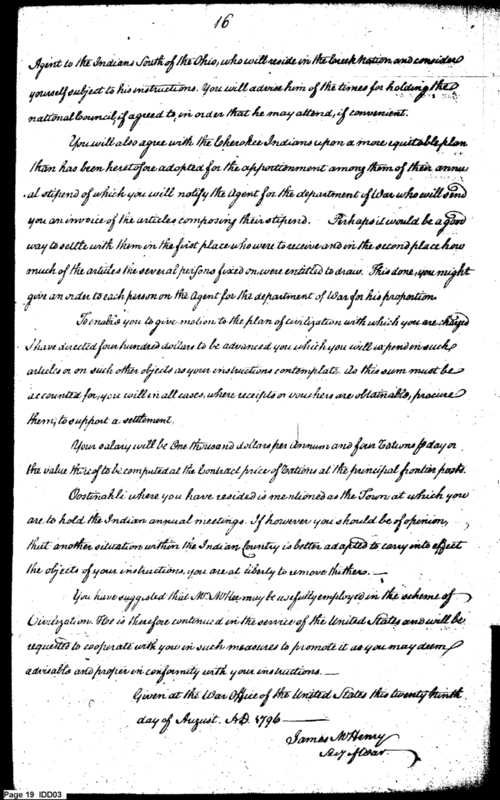 16
Agent to the Indians South of the Ohio, who will reside in the Creek Nation and consider
yourself subject to his instructions. You will advise him of the times for holding the
national Council, if agreed to, in order that he may attend, if convenient.
You will also agree with the Cherokee Indians upon a more equitable plan
than has been heretofore adopted for the apportionment among them of their annu
al stipend of which you will notify the Agent for the department of War who will send
you an invoice of the articles composing their stipend. Perhaps it would be a good
way to settle with them in the first place who were to receive and in the second place how
much of the articles the several persons fixed on, were entitled to draw. This done, you might
give an order to each person on the Agent for the department of War for his proportion
To enable you to give motion to the plan of civilization with which you are charged
I have directed four hundred dollars to be advanced you which you will expend in such
articles or on such other objects as your instructions contemplate. As this sum must be
accounted for, you will in all cases, where receipts or vouchers are obtainable, procure
them, to support a settlement.
Your salary will be One thousand dollars per Annum and four rations day or
the value thereof to be computed at the Contract price of rations at the principal frontier posts.
Oostinahli where you have resided is mentioned as the Town at which you
are to hold the Indian annual meetings. If however you should be of opinion,
that another situation within the Indian Country is better adapted to carry into effect
the objects of your instructions, you are at liberty to remove thither.
You have suggested that Mr. may be usefully employed in the scheme of
Civilization. He is therefore continued in the service of the United States and will be
requested to cooperate with you in such measures to promote it as you may deem
advisable and proper in conformity with your instructions.
Given at the War Office of the United States this twenty
day of August, AD. 1796
James McHenry
Secy of War.
Page 19 IDD03